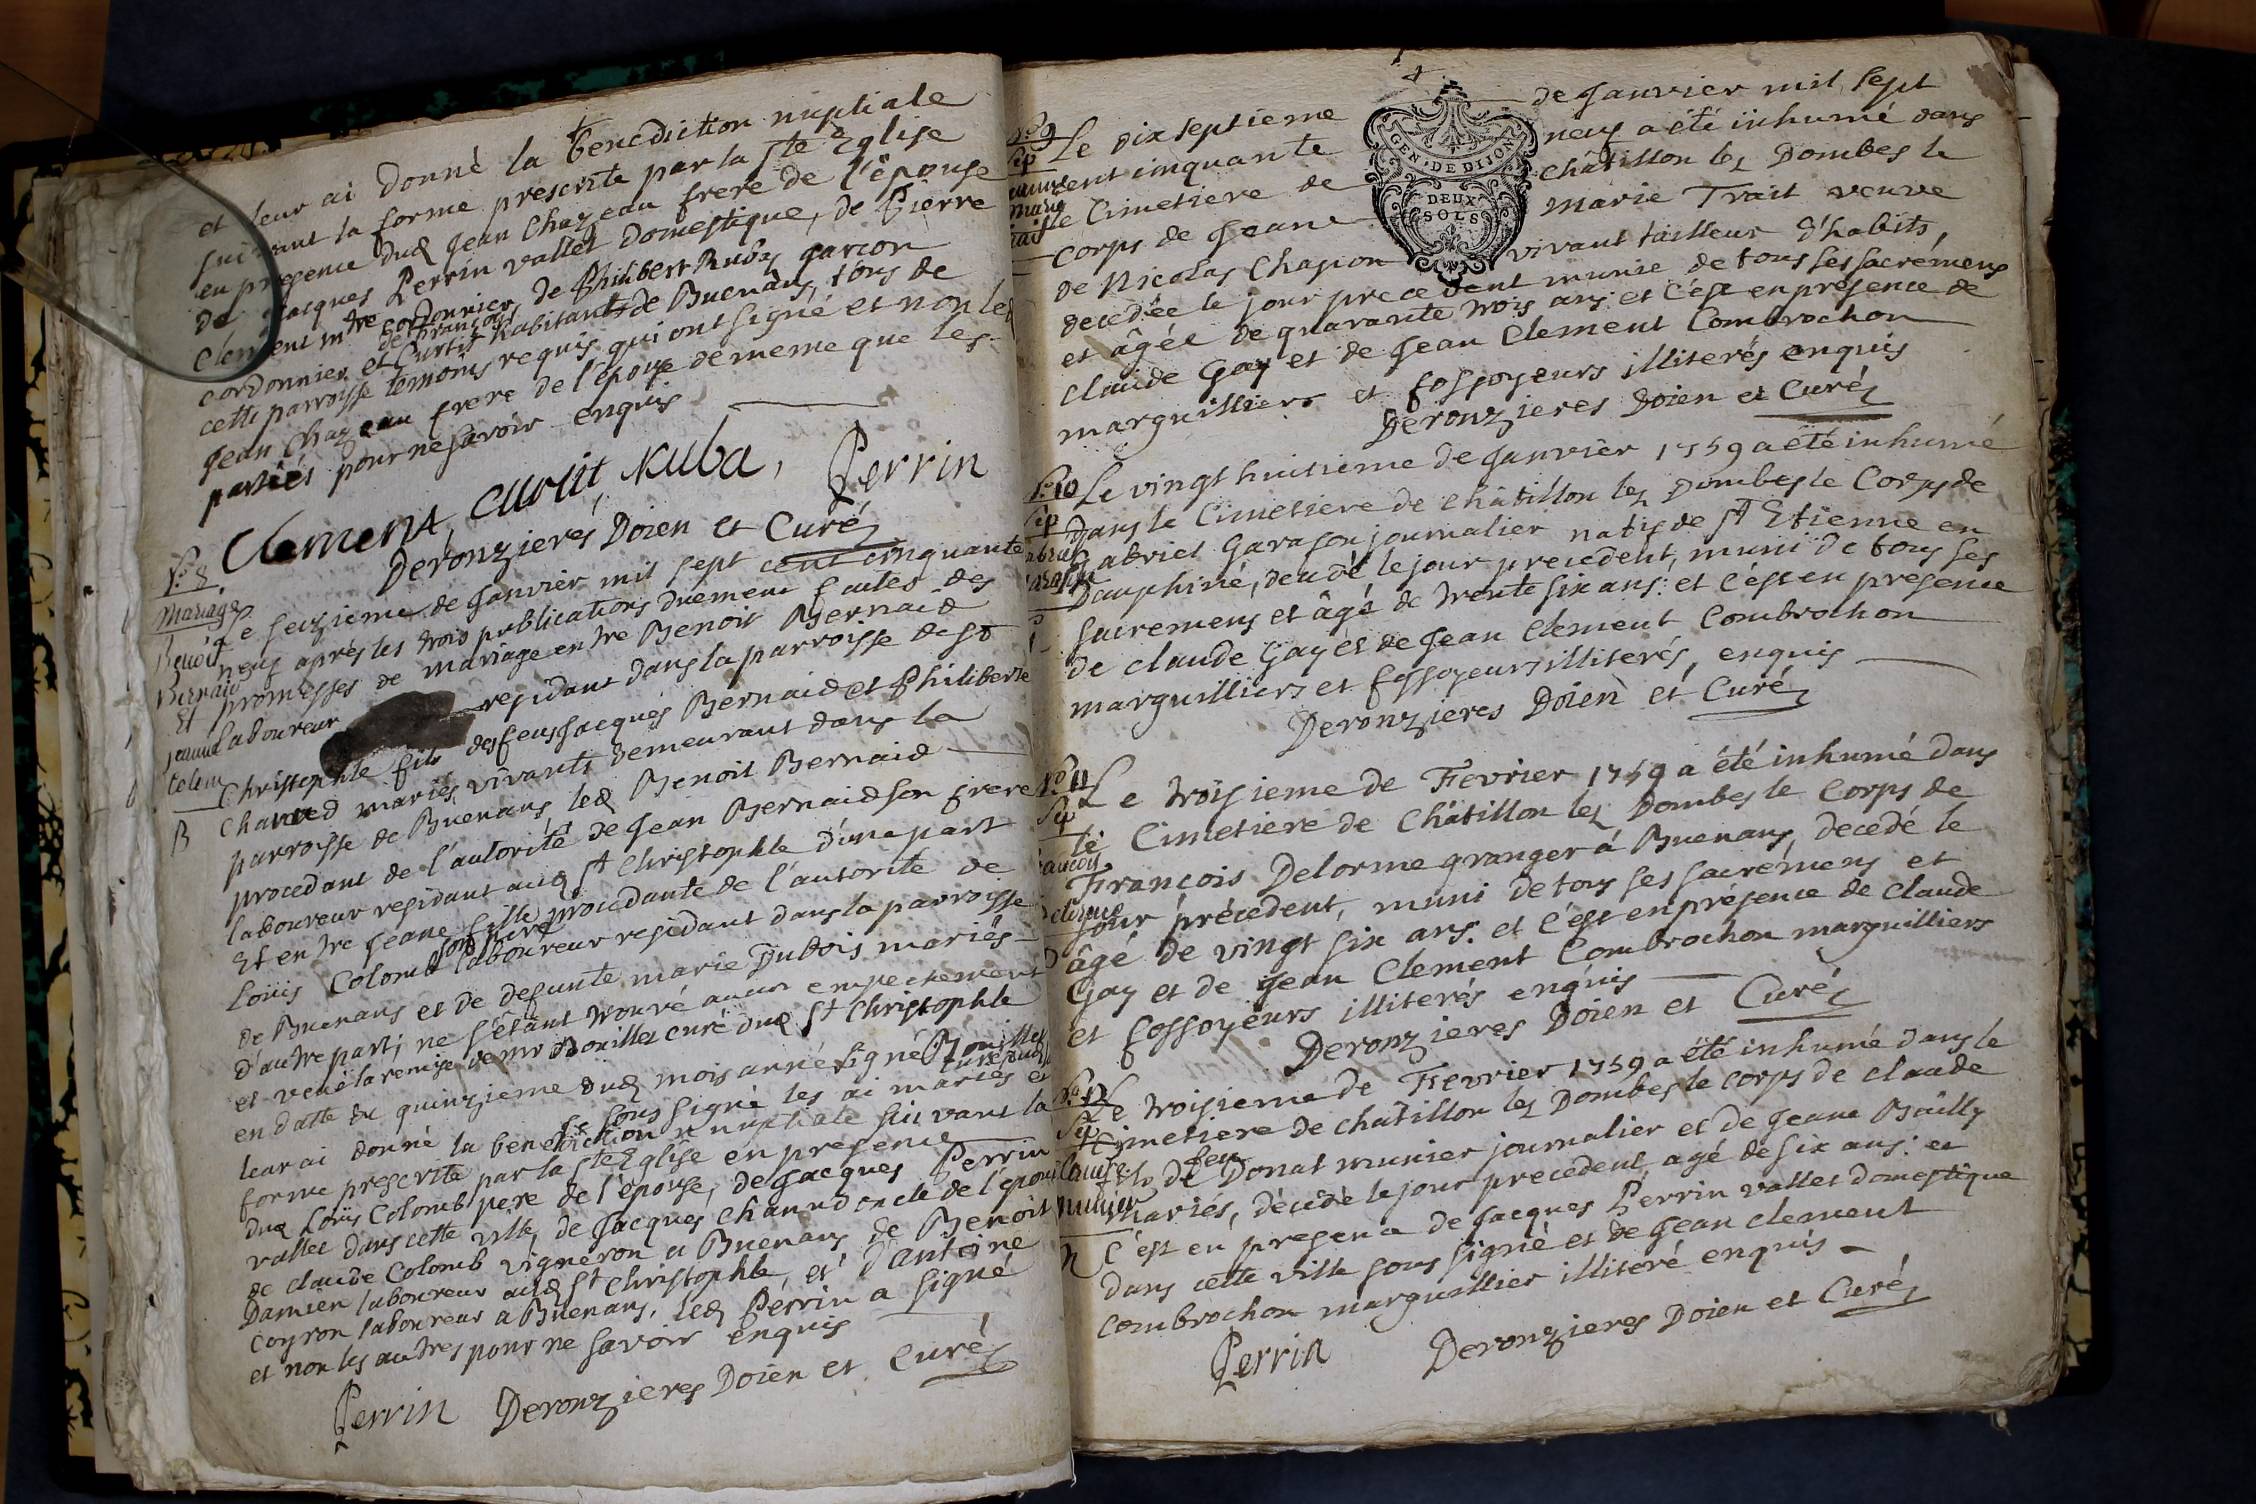 et leur ai donné la benediction nuptiale
suivant la forme prescrite par la Ste Eglise
en presence dud Jean Chazeau frere de l'épouse
de Jacques Perrin vallet domestique, de Pierre
Clement mtre cordonnier, de Philibert Ruby garçon
cordonnier et de françois Curtit habitants de Buenans, tous de
cette parroisse temoins requis qui ont signé et non led
Jean Chazeau frere de l'épouse de même que les
parties pour ne savoir enquis
Clement, Curtit, Ruba, Perrin
Deronzieres Doien et Curé
No 8
Mariage
Benoit
Bernaid
Et
jeanne
Colom
B
Le seizieme de Janvier mil sept cent cinquante
neuf après les trois publications duement faites des
promesses de mariage entre Benoit Bernaid
laboureur residant dans la parroisse de St
Christophle fils des feus Jacques Bernaid et Philiberte
Chanud mariés vivants demeurant dans la
parroisse de Buenans, led Benoit Bernaid
procedant de l'autorité de Jean Bernaid son frere
laboureur residant aud St Christophle d'une part
Et entre Jeane fille procedante de l'autorité de
Loüis Colomb son pere laboureur residant dans la parroisse
de Buenans et de defunte marie Dubois mariés
d'autre part, ne s'étant trouvé aucun empechement
et veüe la remise de mr Bouillet curé dud St Christophle
en datte du quinzieme dud mois année signé Bouillet curé aud
Je sous signé les ai mariés et
leur ai donné la benediction nuptiale suivant la
forme prescrite par la Ste Eglise en presence
dud Loüis Colomb pere de l'épouse, de Jacques Perrin
vallet dans cette ville, de Jacques Chanud oncle de l'époux
de claude Colomb vigneron a Buenans de Benoit
Damien laboureur aud St Christophle, et d'antoine
Coyron laboureur a Buenans, led Perrin a signé
et non les autres pour ne savoir enquis
Perrin Deronzieres Doien et Curé
No 9
Sep
Le dix septieme de Janvier mil sept
cent cinquante neuf a été inhumé dans
le Cimetiere de Châtillon lez Dombes le
corps de Jeane marie Trait veuve
de Nicolas Chapion vivant tailleur d'habits,
decedée le jour precedent munie de tous ses sacrémens
et âgée de quarante trois ans et c'est en présence de
claude Gay et de Jean Clement Combrochon
marguilliers et fossoyeurs illiterés enquis
Deronzieres Doien et Curé
GEN. DE DIJON
DEUX
SOLS
No 10
Sep
Le vingt huitieme de Janvier 1759 a été inhumé
dans le Cimetiere de châtillon lez Dombes le Corps de
Gabriel Garason journalier natif de St Etienne en
Dauphiné, decedé le jour precedent, muni de tous ses
sacremens et âgé de trente six ans: et c'est en presence
de claude Gay et de Jean Clement Combrochon
marguilliers et fossoyeurs illiterés, enquis
Deronzieres Doien et Curé
No 11
Sep
françois
Delorme
Le troisieme de Fevrier 1759 a été inhumé dans
le Cimetiere de Châtillon lez Dombes le Corps de
François Delorme granger á Buenans, decedé le
jour précedent, muni de tous ses sacremens et
âgé de vingt six ans. et c'est en présence de claude
Gay et de Jean Clement Combrochon marguilliers
et fossoyeurs illiterés enquis
Deronzieres Doien et Curé
No 12
Sep
claude
Munier
Le troisieme de Fievrier 1759 a été inhumé dans le
Cimetiere de châtillon lez Dombes le corps de claude
fils de feu Donat munier journalier et de Jeane Bailly
mariés, décédé le jour precedent, agé de six ans: et
c'est en presence de Jacques Perrin vallet domestique
dans cette ville sous signé et de Jean clement
combrochon marguillier illiteré enquis
Perrin Deronzieres Doien et Curé